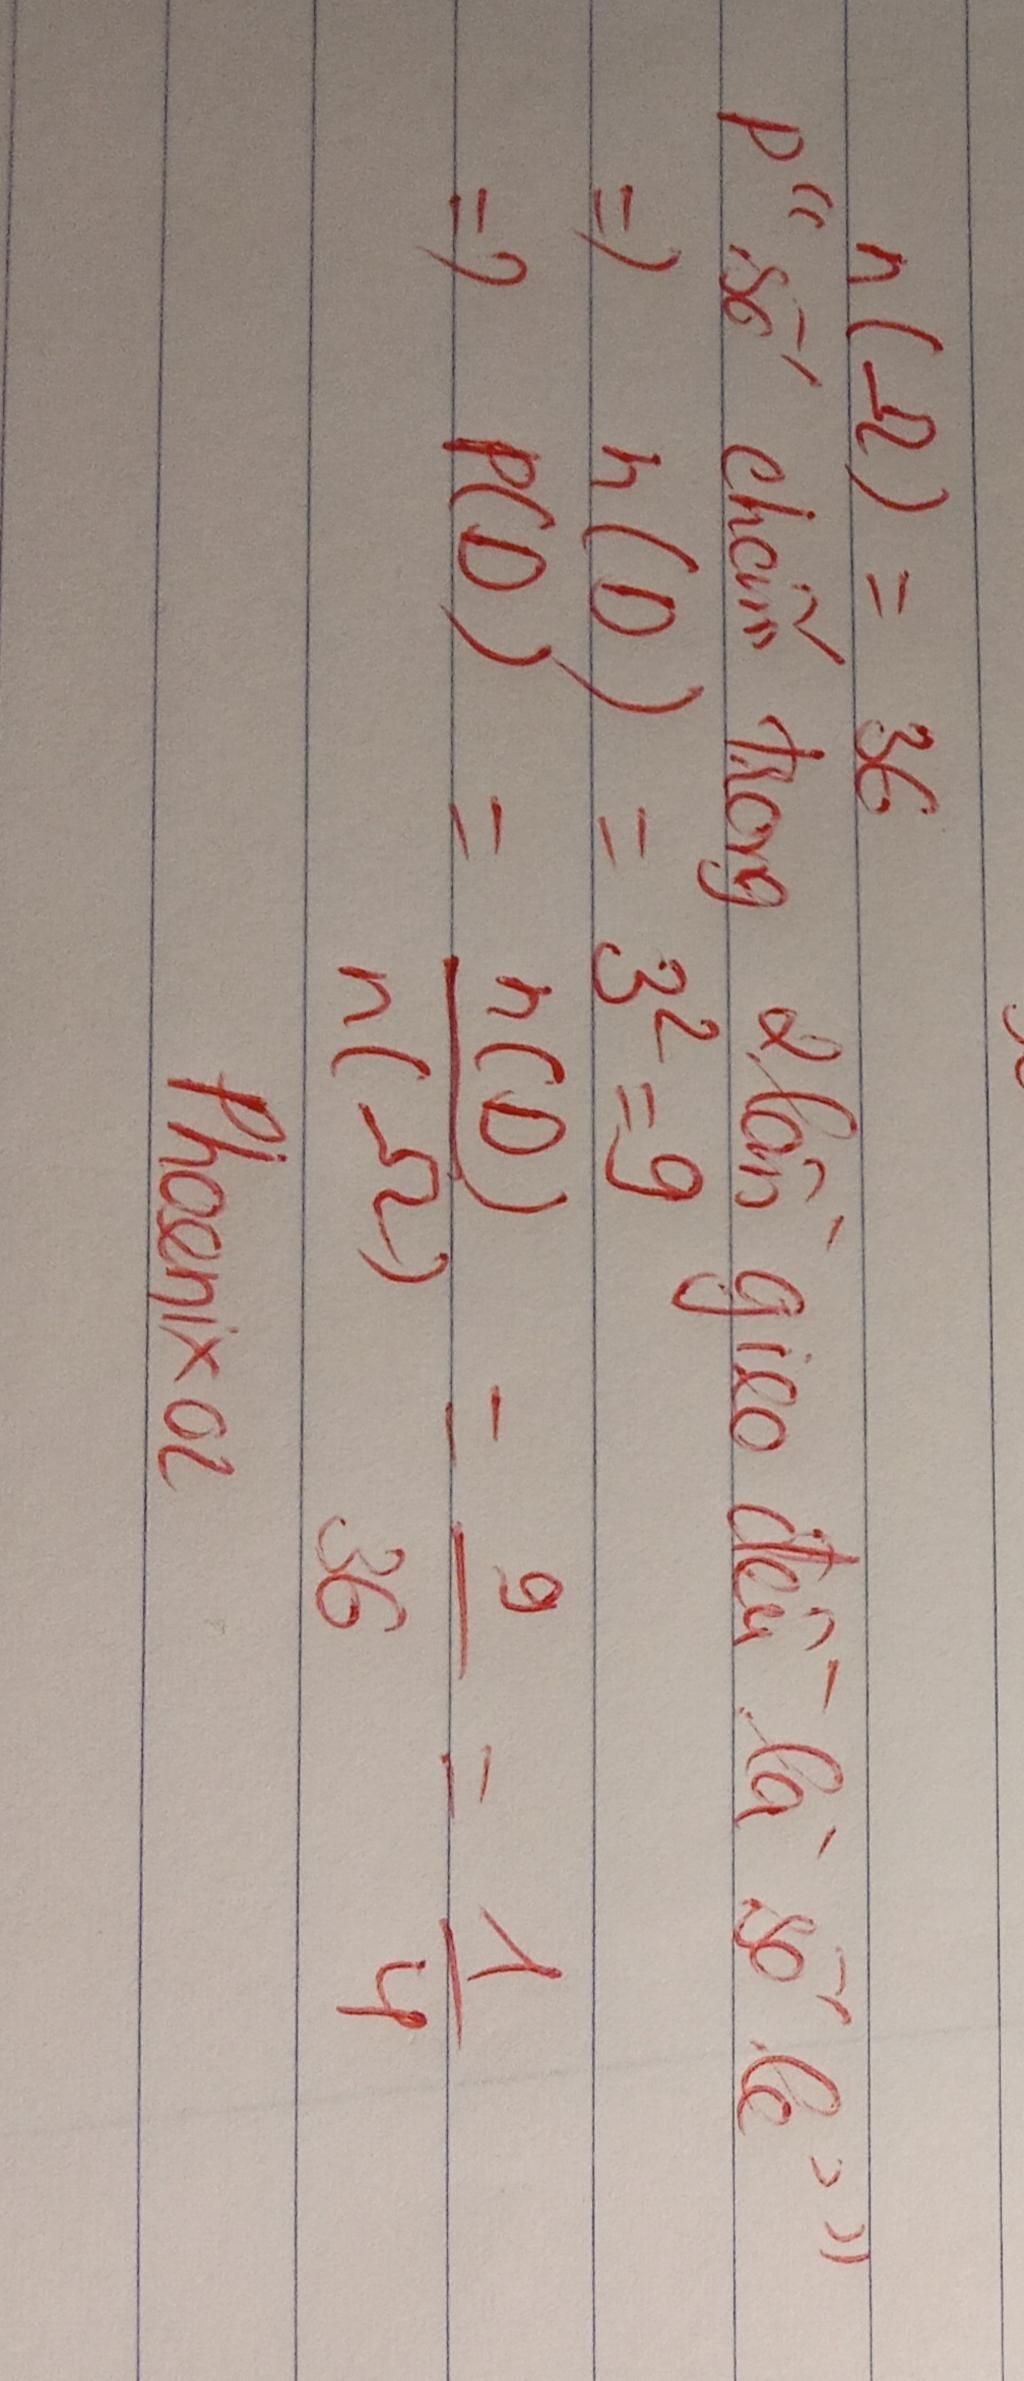 n(Ω) = 36
P "số chấm trong 2 lần gieo đều là số lẻ"
=> n(D) = 3² = 9
=> P(D) = n(D)/n(Ω) = 9/36 = 1/4